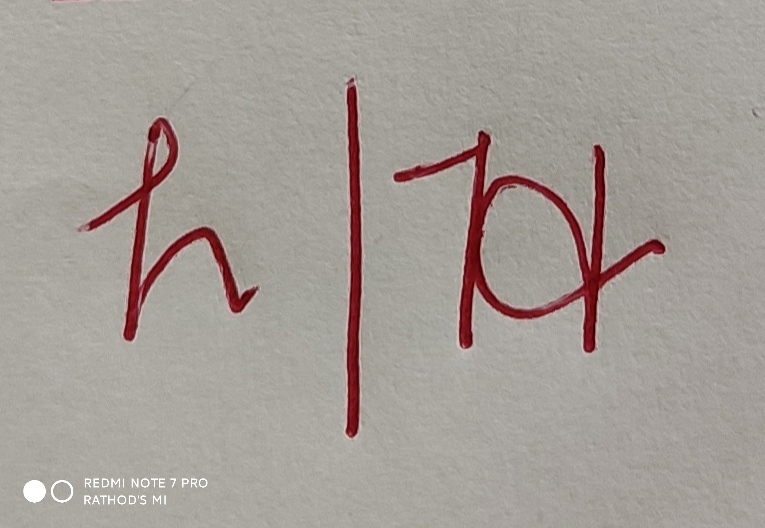 h |
REDMI NOTE 7 PRO
RATHOD'S MI